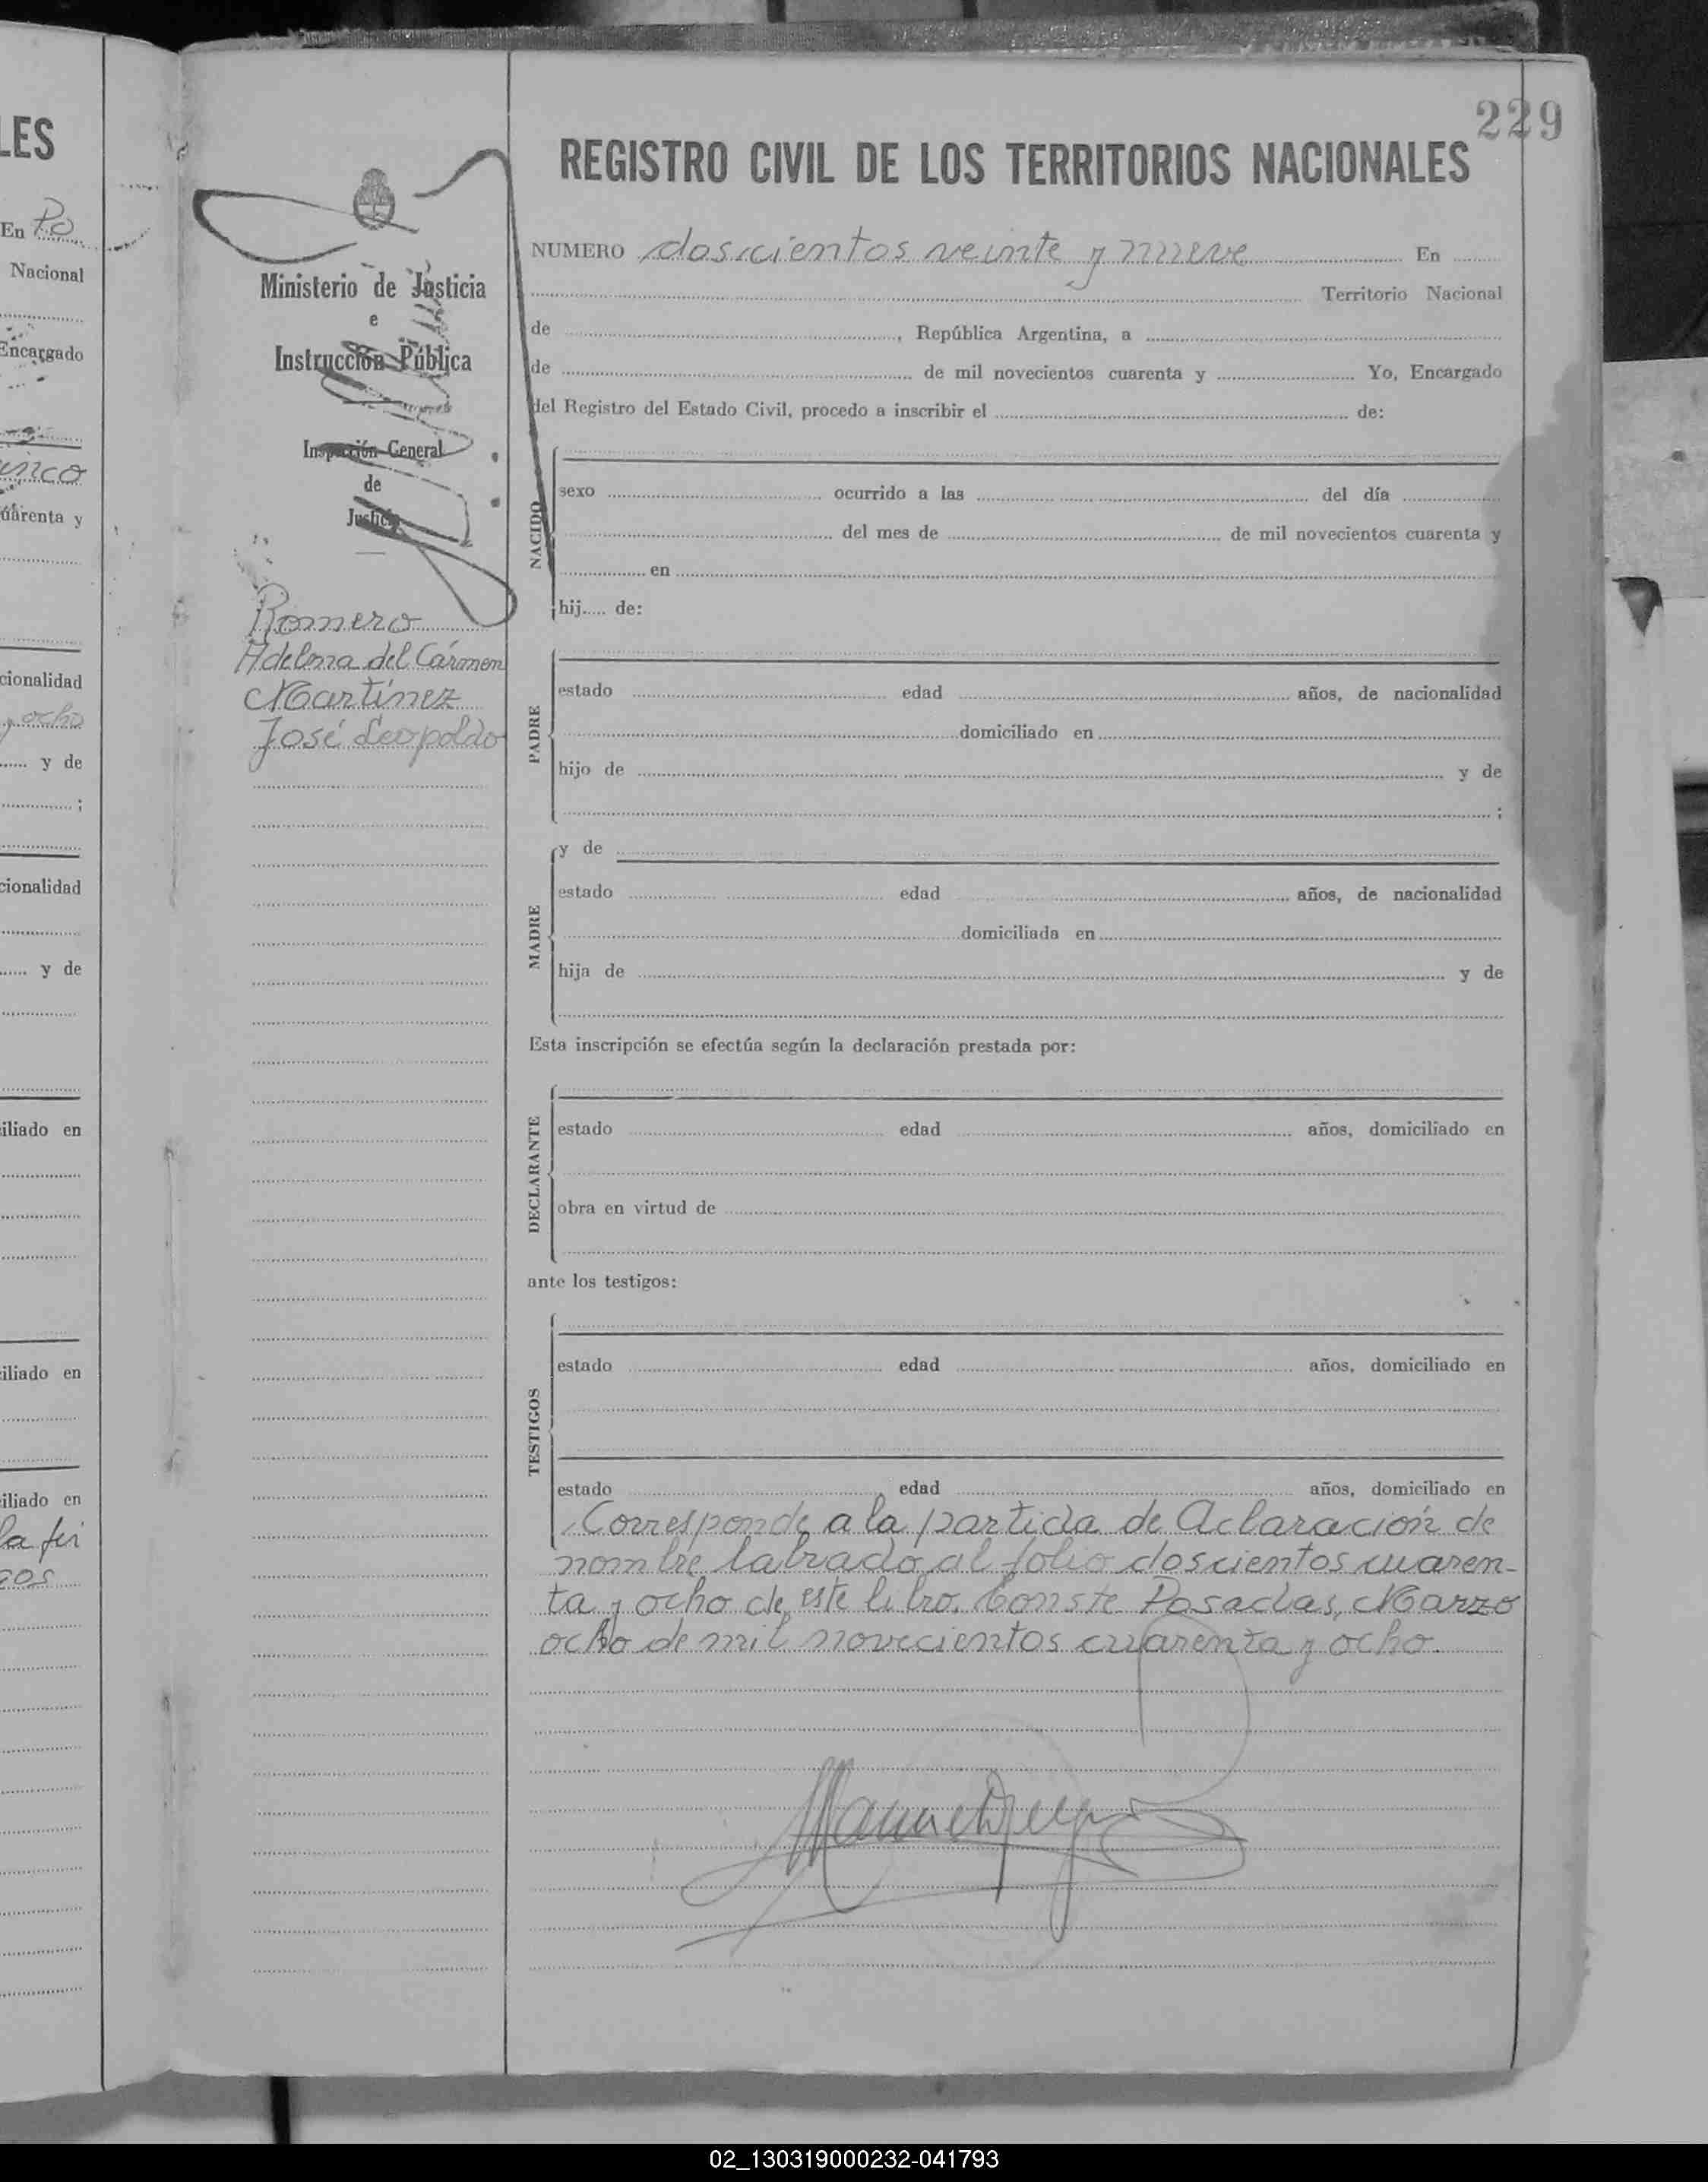 LES
En Po
Nacional
Encargado
cinco
cuarenta y
cionalidad
y ocho
y de
;
cionalidad
y de
iliado en
iliado en
iliado en
la fir
gos
229
REGISTRO CIVIL DE LOS TERRITORIOS NACIONALES
Ministerio de Justicia
e
Instrucción Pública
Inspección General
de
Justicia
Romero
Adelma del Cármen
Martínez
José Leopoldo
NUMERO doscientos veinte y nueve En
Territorio Nacional
de , República Argentina, a
de de mil novecientos cuarenta y Yo, Encargado
del Registro del Estado Civil, procedo a inscribir el de:
NACIDO
sexo ocurrido a las del día
del mes de de mil novecientos cuarenta y
en
hij..... de:
PADRE
estado edad años, de nacionalidad
domiciliado en
hijo de y de
;
MADRE
y de
estado edad años, de nacionalidad
domiciliada en
hija de y de
Esta inscripción se efectúa según la declaración prestada por:
DECLARANTE
estado edad años, domiciliado en
obra en virtud de
ante los testigos:
TESTIGOS
estado edad años, domiciliado en
estado edad años, domiciliado en
Corresponde a la partida de Aclaración de
nombre labrado al folio doscientos cuaren-
ta y ocho de este libro. Conste Posadas, Marzo
ocho de mil novecientos cuarenta y ocho.
02_130319000232-041793